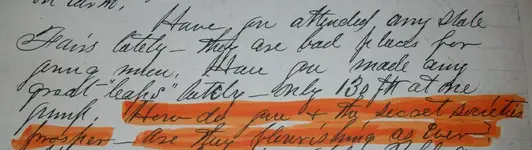 on earth.
Have you attended any State
Fairs lately – they are bad places for
young men. Have you made any
great "leaps" lately – only 130 ft at one
jump. How do you & the secret societies
prosper – are they flourishing as ever